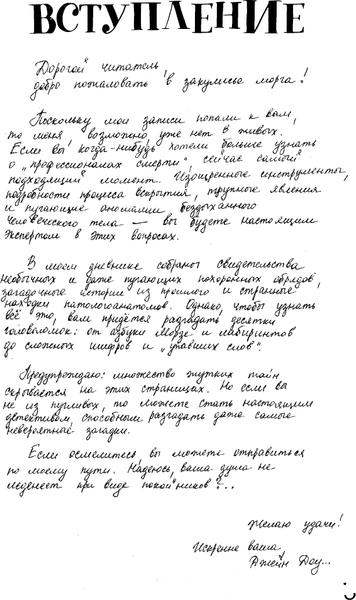 ВСТУПЛЕНИЕ
Дорогой читатель,
добро пожаловать в закулисье морга!
Поскольку мои записи попали к вам,
то меня, возможно, уже нет в живых.
Если вы когда-нибудь хотели больше узнать
о „профессионалах смерти“, сейчас самый
подходящий момент. Изощренные инструменты,
подробности процесса вскрытия, трупные явления
и пугающие аномалии бездыханного
человеческого тела — вы будете настоящим
экспертом в этих вопросах.
В моем дневнике собраны свидетельства
необычных и даже пугающих похоронных обрядов,
загадочные истории из прошлого и странные
находки патологоанатомов. Однако, чтобы узнать
всё это, вам придется разгадать десятки
головоломок: от азбуки Морзе и лабиринтов
до сложных шифров и „упавших слов“.
Предупреждаю: множество жутких тайн
скрывается на этих страницах. Но если вы
не из пугливых, то можете стать настоящим
детективом, способным разгадать даже самые
невероятные загадки.
Если осмелитесь, вы можете отправиться
по моему пути. Надеюсь, ваша душа не
леденеет при виде покойников?..
Желаю удачи!
Искренне ваша,
Джейн Доу...